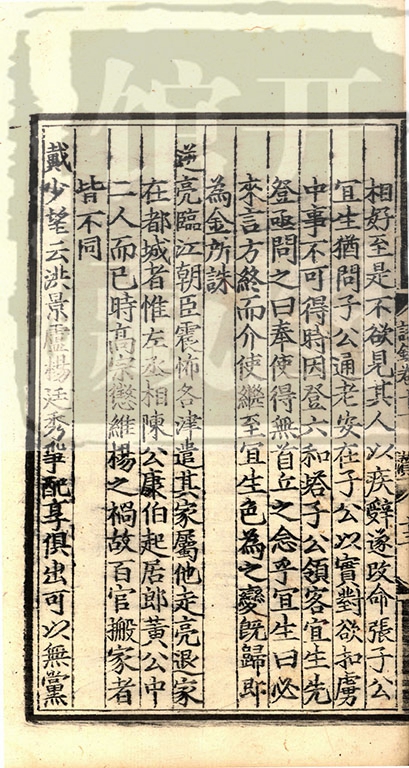 相好至是不欲見其人以疾辭遂改命張子公
宜生猶問子公通老安在子公以實對欲扣虜
中事不可得時因登六和塔子公領客宜生先
登亟問之曰奉使得無首丘之念乎宜生曰必
來言方終而介使繼至宜生色為之變既歸即
為金所誅
逆亮臨江朝臣震怖各津遣其家屬他走亮退家
在都城者惟左丞相陳公康伯起居郎黃公中
二人而已時高宗懲維楊之禍故百官搬家者
皆不同
戴少望云洪景盧楊廷秀爭配享俱出可以無黨